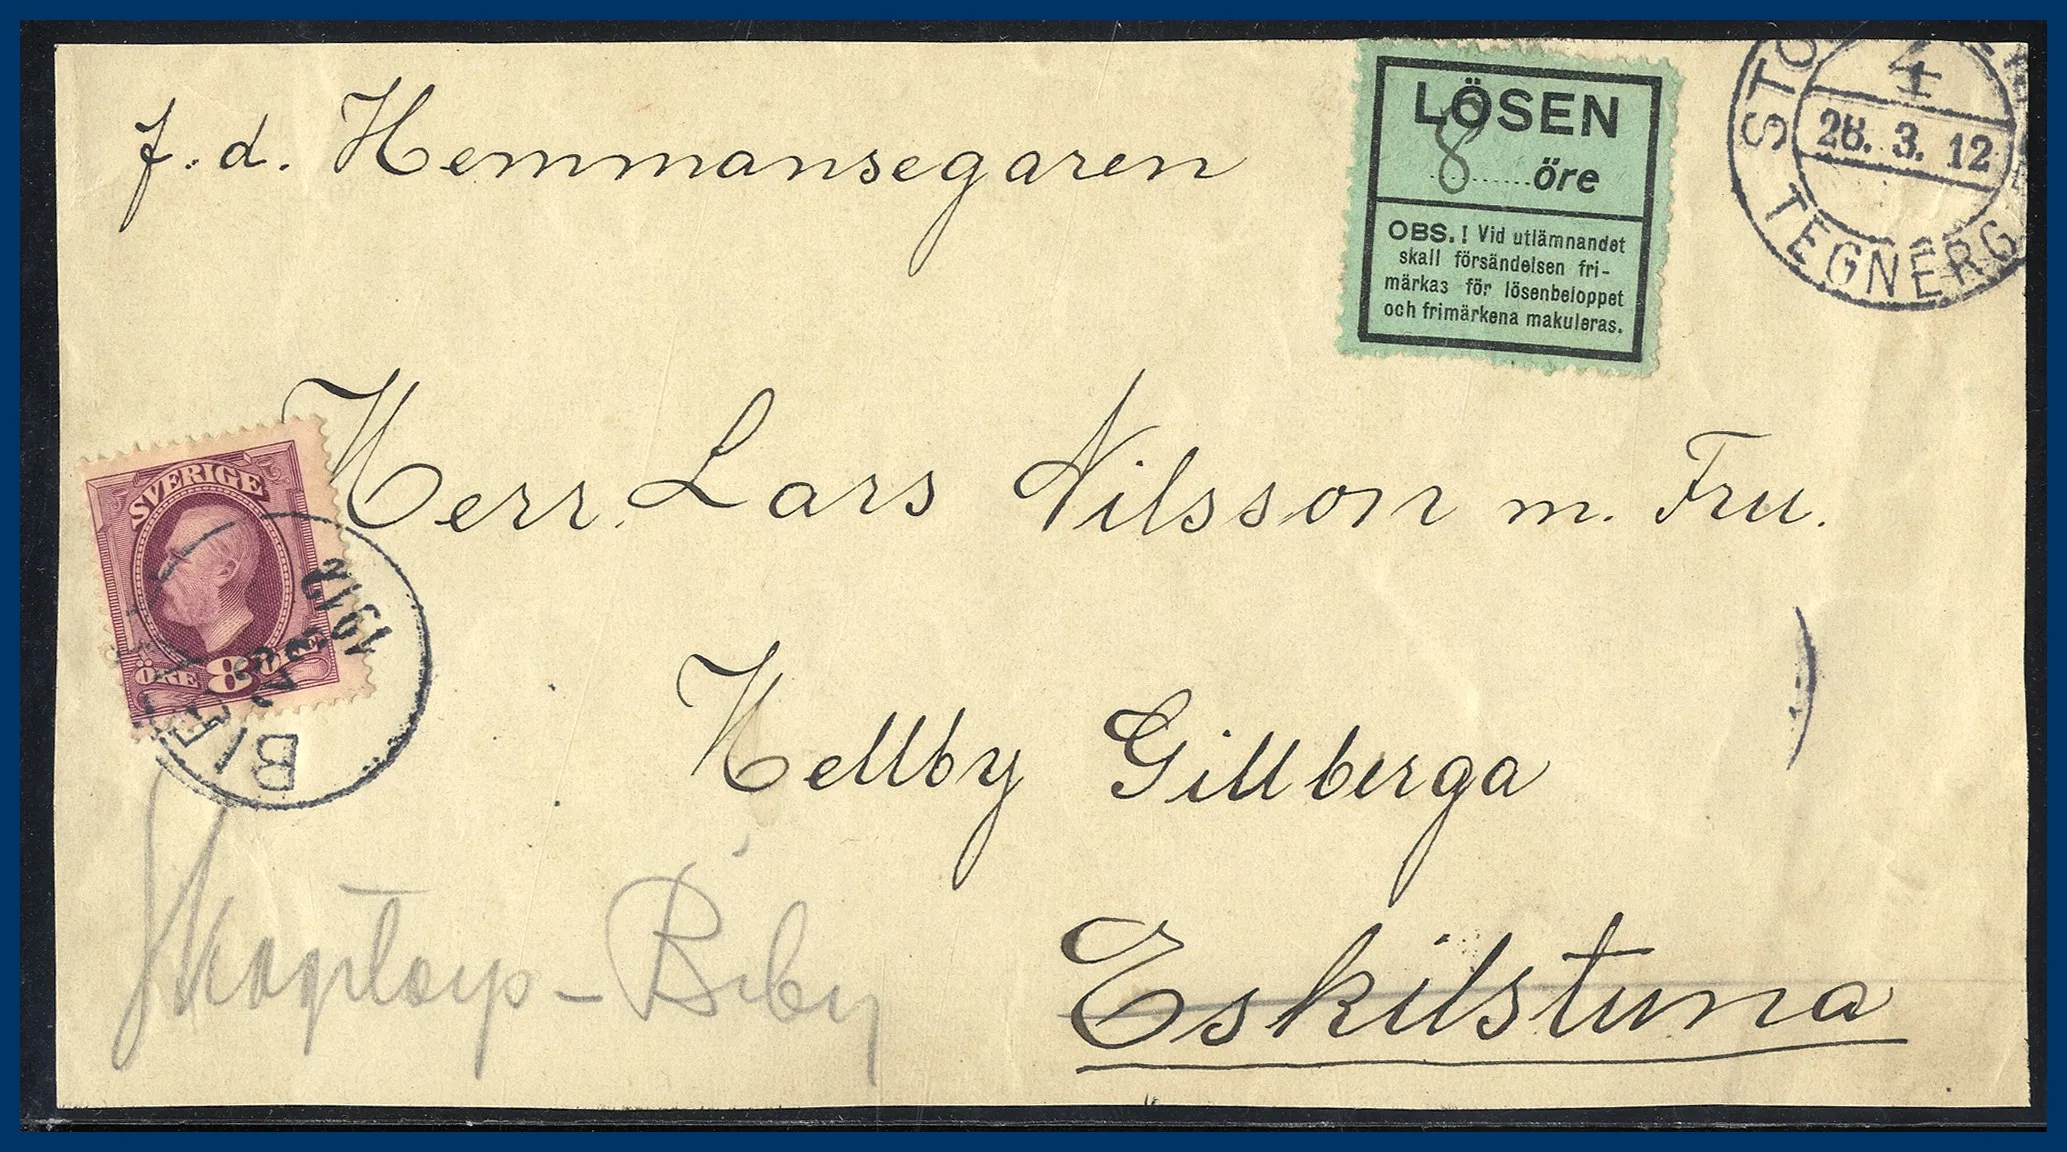 f.d. Hemmansegaren
LÖSEN
8 öre
OBS.! Vid utlämnandet
skall försändelsen fri-
märkas för lösenbeloppet
och frimärkena makuleras.
STO
4
28. 3. 12
TEGNERG
Herr. Lars Nilsson m. Fru.
SVERIGE
ÖRE 8 ÖRE
1912
3
BIE
Hellby Gillberga
Skogstorp – Biby
Eskilstuna